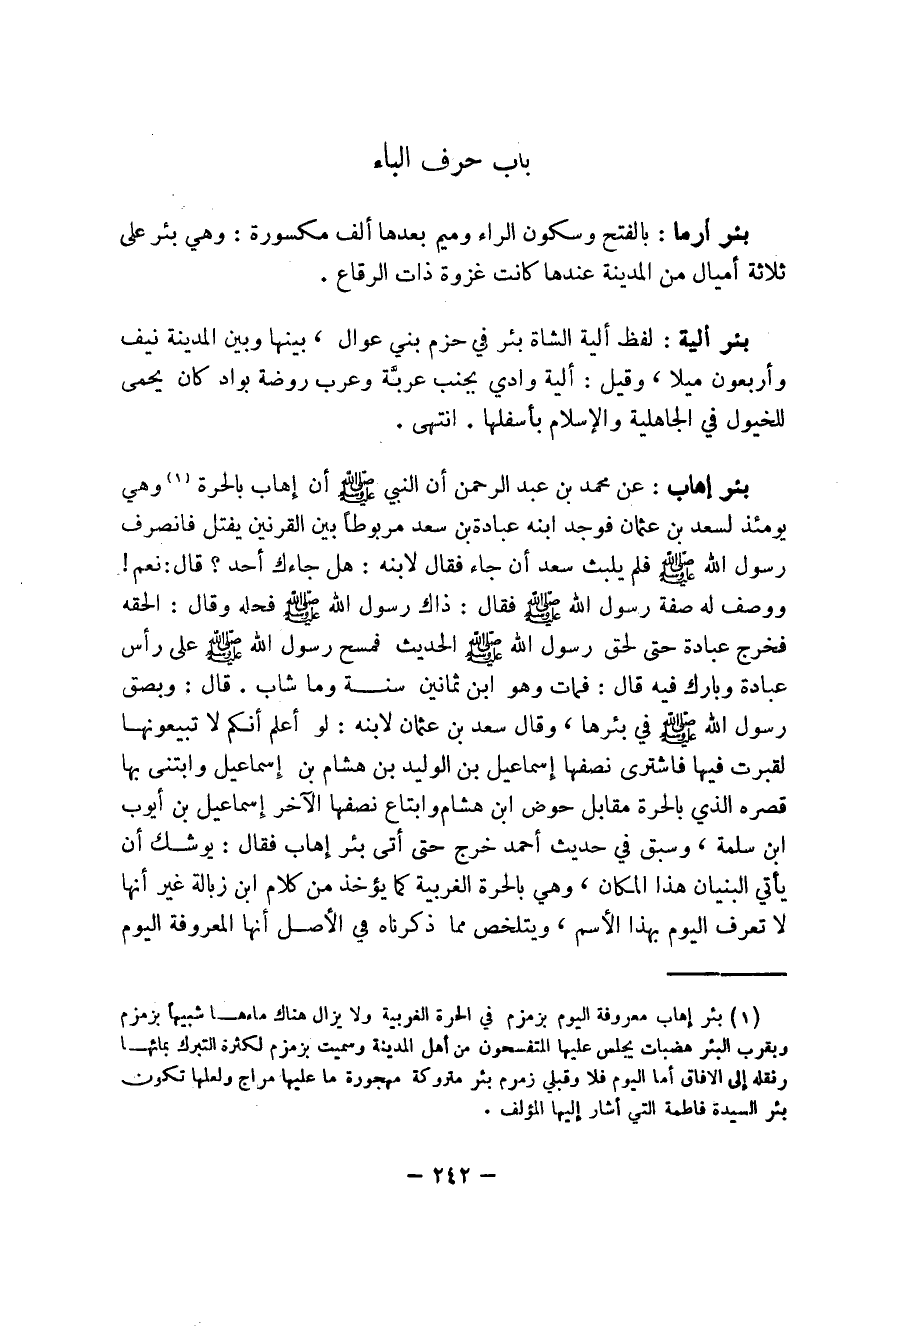 باب حرف الباء
بئر أرما : بالفتح وسكون الراء وميم بعدها ألف مكسورة : وهي بئر على
ثلاثة أميال من المدينة عندها كانت غزوة ذات الرقاع .
بئر ألية : لفظ ألية الشاة بئر في حزم بني عوال ، بينها وبين المدينة نيف
وأربعون ميلا ، وقيل : ألية وادي بجنب عربة وعرب روضة بواد كان يحمى
للخيول في الجاهلية والإسلام بأسفلها . انتهى .
بئر إهاب : عن محمد بن عبد الرحمن أن النبي ﷺ أن إهاب بالحرة (١) وهي
يومئذ لسعد بن عثمان فوجد ابنه عبادةبن سعد مربوطاً بين القرنين يفتل فانصرف
رسول الله ﷺ فلم يلبث سعد أن جاء فقال لابنه : هل جاءك أحد ؟ قال : نعم !
ووصف له صفة رسول الله ﷺ فقال : ذاك رسول الله ﷺ فحله وقال : الحقه
فخرج عبادة حتى لحق رسول الله ﷺ الحديث فمسح رسول الله ﷺ على رأس
عبادة وبارك فيه قال : فمات وهو ابن ثمانين سنــة وما شاب . قال : وبصق
رسول الله ﷺ في بئرها ، وقال سعد بن عثمان لابنه : لو أعلم أنكم لا تبيعونهــا
لقبرت فيها فاشترى نصفها إسماعيل بن الوليد بن هشام بن إسماعيل وابتنى بها
قصره الذي بالحرة مقابل حوض ابن هشام وابتاع نصفها الآخر إسماعيل بن أيوب
ابن سلمة ، وسبق في حديث أحمد خرج حتى أتى بئر إهاب فقال : يوشــك أن
يأتي البنيان هذا المكان ، وهي بالحرة الغربية كما يؤخذ من كلام ابن زبالة غير أنها
لا تعرف اليوم بهذا الأسم ، ويتلخص مما ذكرناه في الأصــل أنها المعروفة اليوم
(١) بئر إهاب معروفة اليوم بزمزم في الحرة الغربية ولا يزال هناك ماءهــا شبيهاً بزمزم
وبقرب البئر هضبات يجلس عليها المتفسحون من أهل المدينة وسميت بزمزم لكثرة التبرك بمائهــا
ونقله إلى الافاق أما اليوم فلا وقبلي زمرم بئر متروكة مهجورة ما عليها مراج ولعلها تكون
بئر السيدة فاطمة التي أشار إليها المؤلف .
– ٢٤٢ –